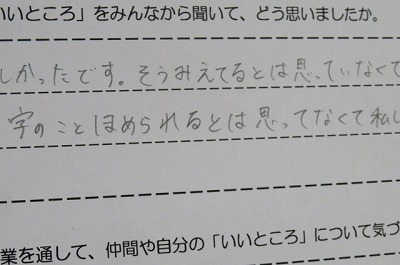 いいところ」をみんなから聞いて、どう思いましたか。
しかったです。そうみえてるとは思っていなくて
字のことほめられるとは思ってなくて私し
業を通して、仲間や自分の「いいところ」について気づ